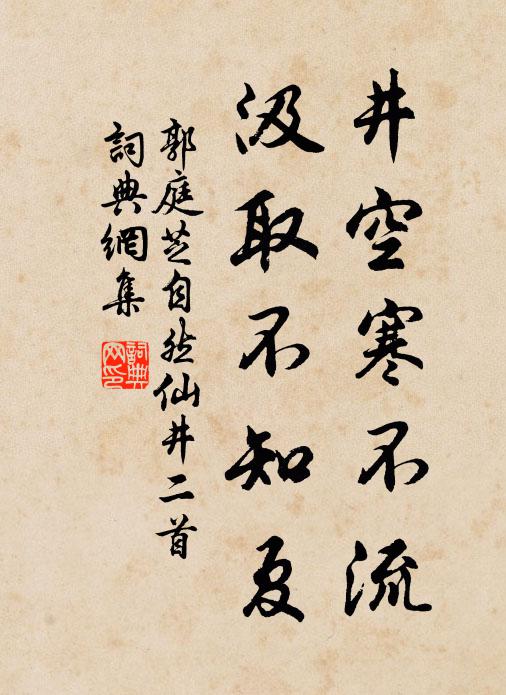 井空寒不流
汲取不知夏
郭庭芝自然仙井二首
詞典網集
詞典網印